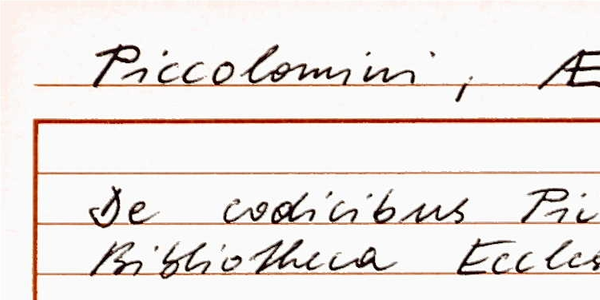 Piccolomini, Æ
De codicibus Pic
Bibliotheca Eccles